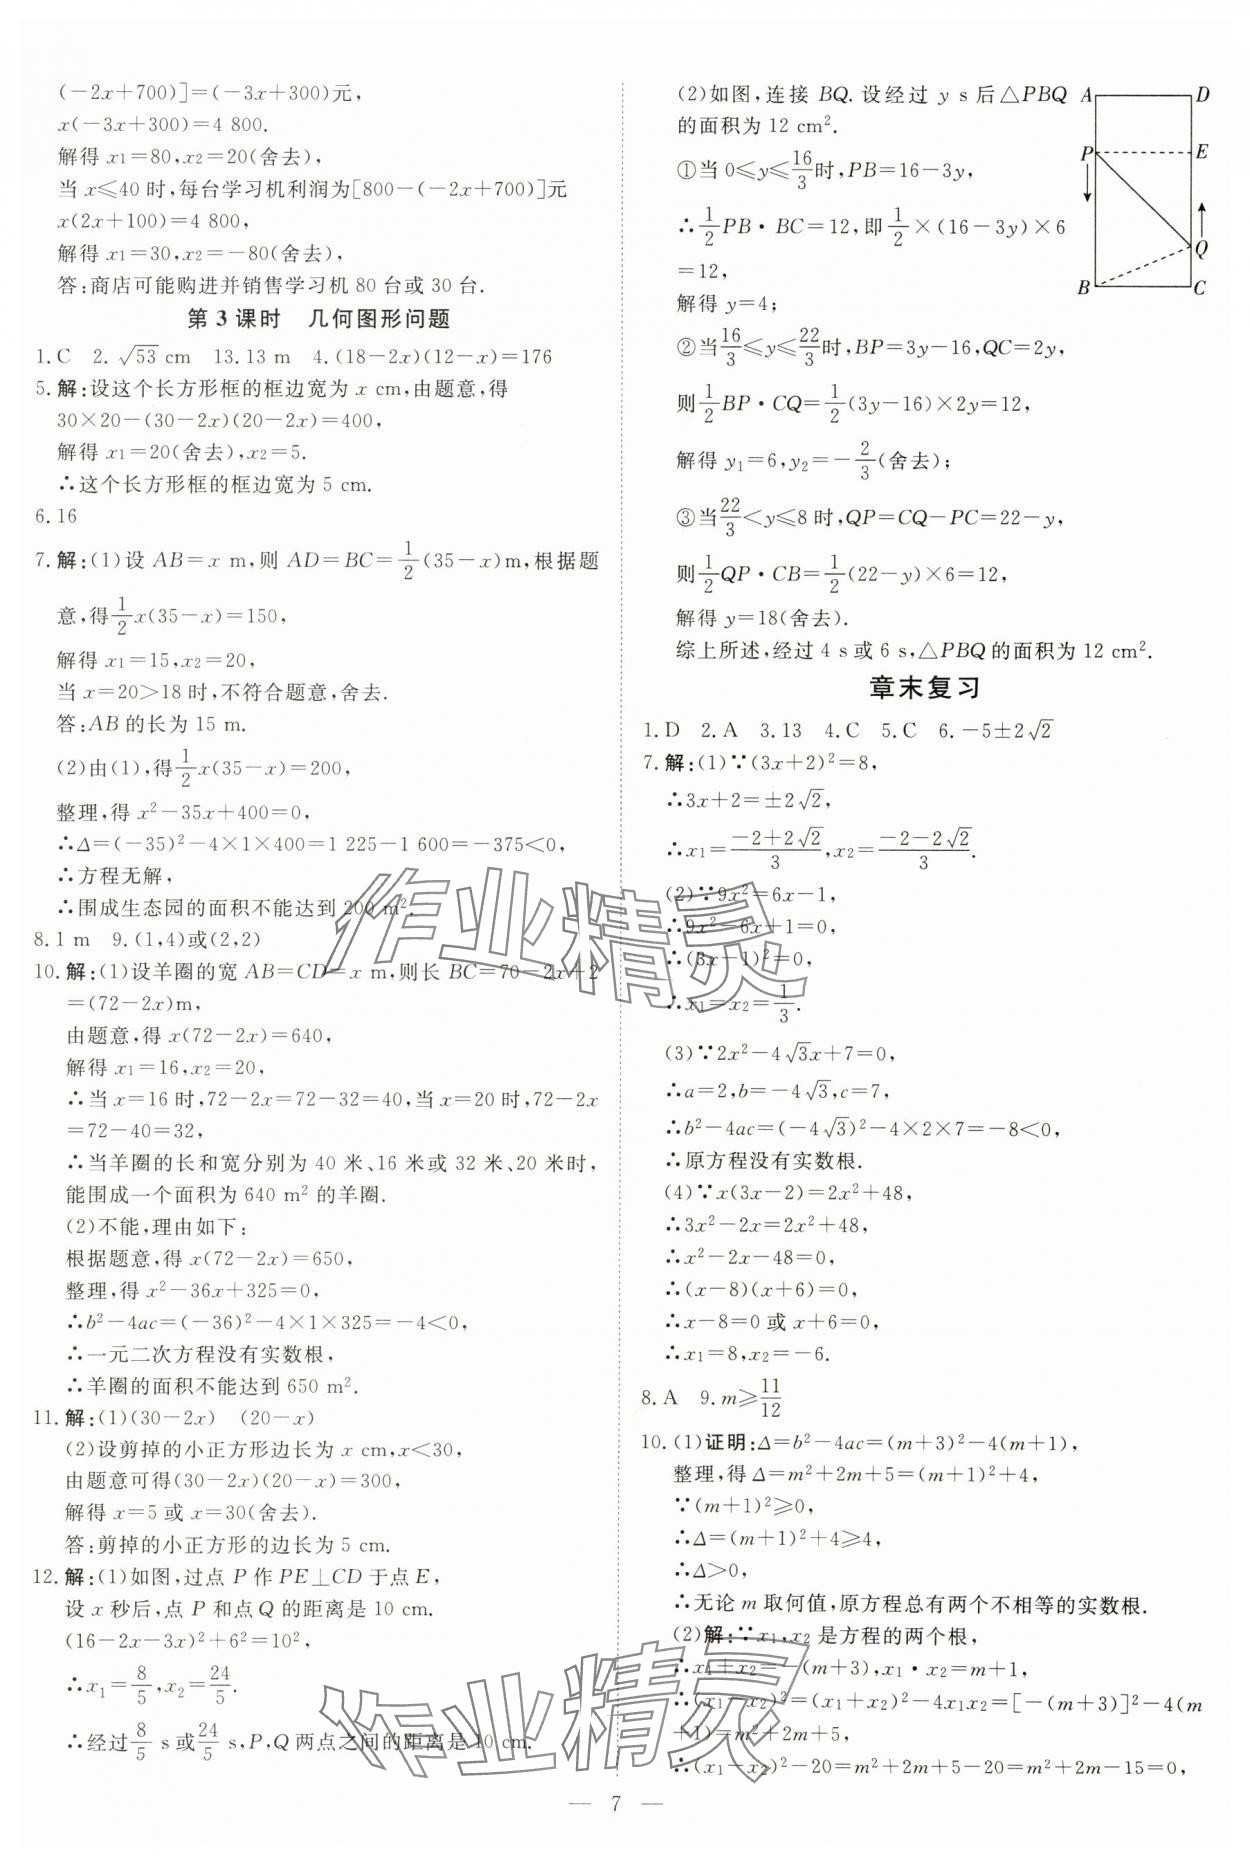 (-2x+700)]=(-3x+300)元,
x(-3x+300)=4 800.
解得 x₁=80,x₂=20(舍去),
当 x≤40 时,每台学习机利润为[800-(-2x+700)]元
x(2x+100)=4 800,
解得 x₁=30,x₂=-80(舍去),
答:商店可能购进并销售学习机 80 台或 30 台.
第 3 课时 几何图形问题
1.C 2.√53 cm 13.13 m 4.(18-2x)(12-x)=176
5.解:设这个长方形框的框边宽为 x cm,由题意,得
30×20-(30-2x)(20-2x)=400,
解得 x₁=20(舍去),x₂=5.
∴这个长方形框的框边宽为 5 cm.
6.16
7.解:(1)设 AB=x m,则 AD=BC=1/2(35-x)m,根据题
意,得1/2x(35-x)=150,
解得 x₁=15,x₂=20,
当 x=20>18 时,不符合题意,舍去.
答:AB 的长为 15 m.
(2)由(1),得1/2x(35-x)=200,
整理,得 x²-35x+400=0,
∴Δ=(-35)²-4×1×400=1 225-1 600=-375<0,
∴方程无解,
∴围成生态园的面积不能达到 200 m².
8.1 m 9.(1,4)或(2,2)
10.解:(1)设羊圈的宽 AB=CD=x m,则长 BC=70-2x+2
=(72-2x)m,
由题意,得 x(72-2x)=640,
解得 x₁=16,x₂=20,
∴当 x=16 时,72-2x=72-32=40,当 x=20 时,72-2x
=72-40=32,
∴当羊圈的长和宽分别为 40 米、16 米或 32 米、20 米时,
能围成一个面积为 640 m² 的羊圈.
(2)不能,理由如下:
根据题意,得 x(72-2x)=650,
整理,得 x²-36x+325=0,
∴b²-4ac=(-36)²-4×1×325=-4<0,
∴一元二次方程没有实数根,
∴羊圈的面积不能达到 650 m².
11.解:(1)(30-2x) (20-x)
(2)设剪掉的小正方形边长为 x cm,x<30,
由题意可得(30-2x)(20-x)=300,
解得 x=5 或 x=30(舍去).
答:剪掉的小正方形的边长为 5 cm.
12.解:(1)如图,过点 P 作 PE⊥CD 于点 E,
设 x 秒后,点 P 和点 Q 的距离是 10 cm.
(16-2x-3x)²+6²=10²,
∴x₁=8/5,x₂=24/5.
∴经过8/5 s 或24/5 s,P,Q 两点之间的距离是 10 cm.
(2)如图,连接 BQ.设经过 y s 后△PBQ
的面积为 12 cm².
①当 0≤y≤16/3时,PB=16-3y,
∴1/2PB·BC=12,即1/2×(16-3y)×6
=12,
解得 y=4;
②当16/3≤y≤22/3时,BP=3y-16,QC=2y,
则1/2BP·CQ=1/2(3y-16)×2y=12,
解得 y₁=6,y₂=-2/3(舍去);
③当22/3<y≤8 时,QP=CQ-PC=22-y,
则1/2QP·CB=1/2(22-y)×6=12,
解得 y=18(舍去).
综上所述,经过 4 s 或 6 s,△PBQ 的面积为 12 cm².
A D
P E
Q
B C
章末复习
1.D 2.A 3.13 4.C 5.C 6.-5±2√2
7.解:(1)∵(3x+2)²=8,
∴3x+2=±2√2,
∴x₁=(-2+2√2)/3,x₂=(-2-2√2)/3.
(2)∵9x²=6x-1,
∴9x²-6x+1=0,
∴(3x-1)²=0,
∴x₁=x₂=1/3.
(3)∵2x²-4√3x+7=0,
∴a=2,b=-4√3,c=7,
∴b²-4ac=(-4√3)²-4×2×7=-8<0,
∴原方程没有实数根.
(4)∵x(3x-2)=2x²+48,
∴3x²-2x=2x²+48,
∴x²-2x-48=0,
∴(x-8)(x+6)=0,
∴x-8=0 或 x+6=0,
∴x₁=8,x₂=-6.
8.A 9.m≥11/12
10.(1)证明:Δ=b²-4ac=(m+3)²-4(m+1),
整理,得 Δ=m²+2m+5=(m+1)²+4,
∵(m+1)²≥0,
∴Δ=(m+1)²+4≥4,
∴Δ>0,
∴无论 m 取何值,原方程总有两个不相等的实数根.
(2)解:∵x₁,x₂ 是方程的两个根,
∴x₁+x₂=-(m+3),x₁·x₂=m+1,
∴(x₁-x₂)²=(x₁+x₂)²-4x₁x₂=[-(m+3)]²-4(m
+1)=m²+2m+5,
∴(x₁-x₂)²-20=m²+2m+5-20=m²+2m-15=0,
— 7 —
作业精灵
作业精灵